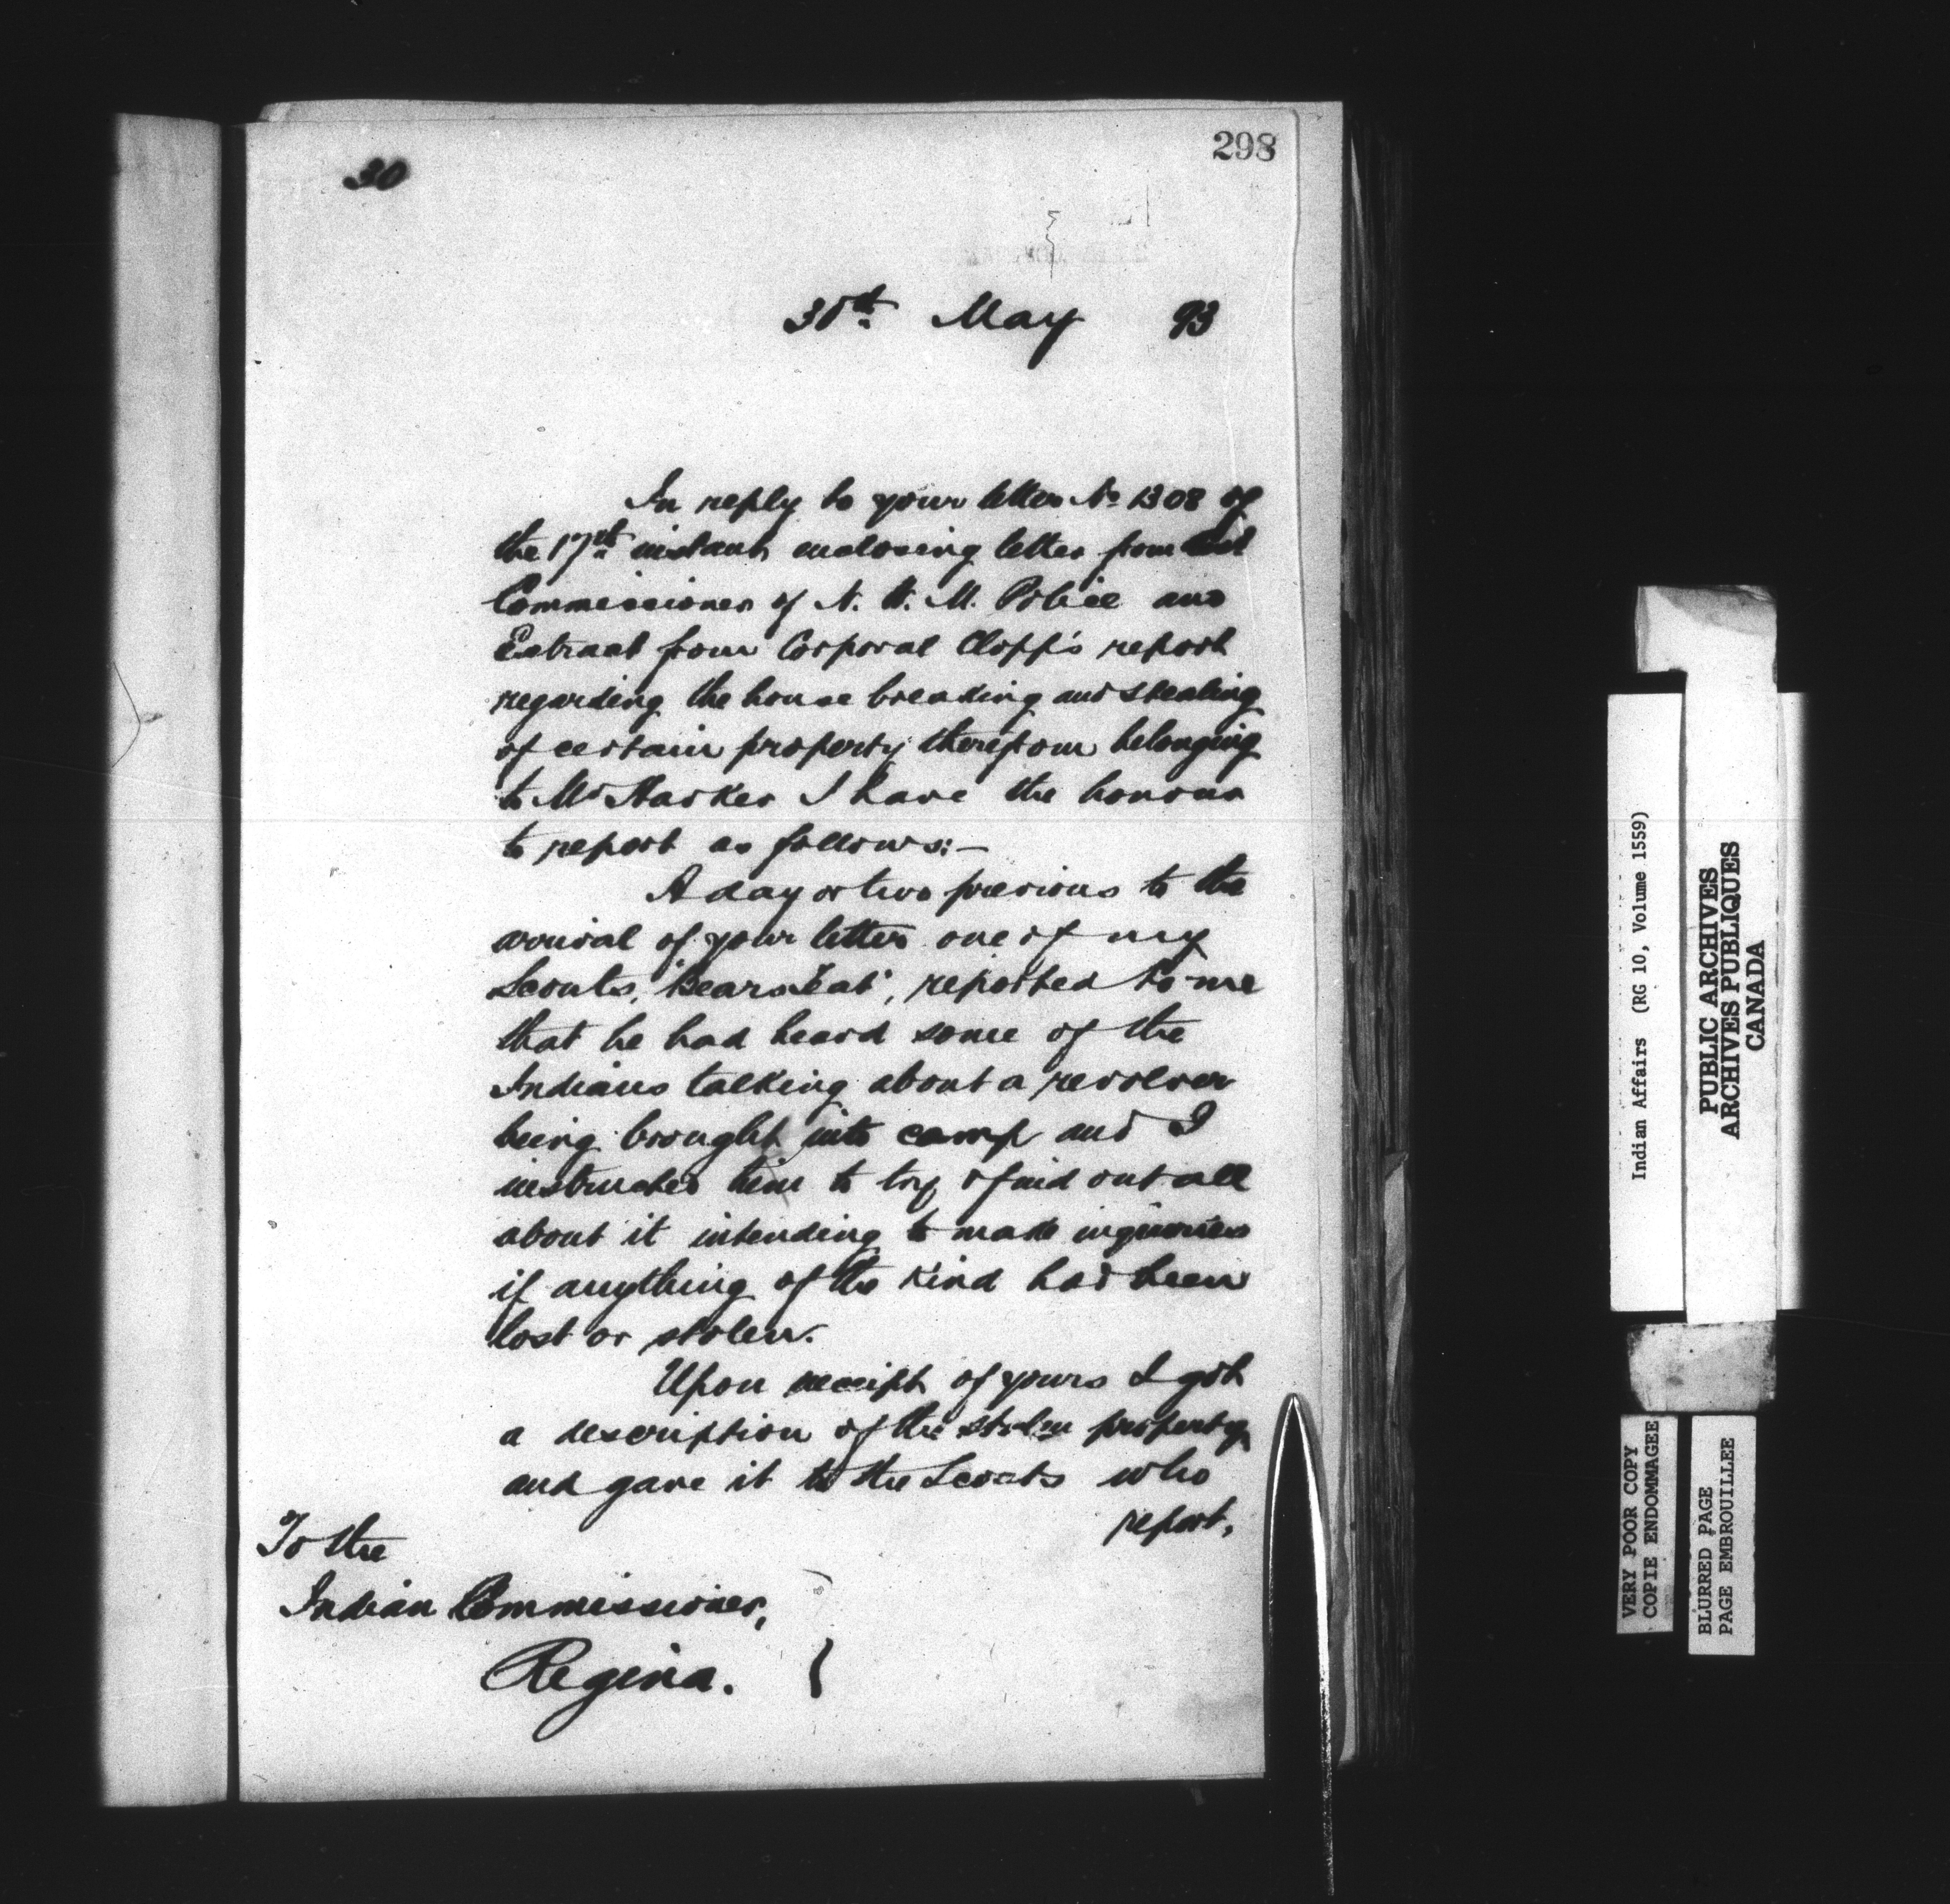 298
30
30th May 93
In reply to your letter No 1308 of
the 17th instant enclosing letter from
Commissioner of N. W. M. Police and
Extract from Corporal report
regarding the house breaking and stealing
of certain property therefrom belonging
to Mr I have the honour
to report as follows:-
A day or two previous to the
arrival of your letter one of my
Scouts, reported to me
that he had heard some of the
Indians talking about a revolver
being brought into camp and I
instructed him to try & find out all
about it intending to make inquiries
if anything of the kind had been
lost or stolen.
Upon receipt of yours I got
a description of the stolen property
and gave it to the Scouts who
report,
To the
Indian Commissioner,
Regina.
Indian Affairs (RG 10, Volume 1559)
PUBLIC ARCHIVES
ARCHIVES PUBLIQUES
CANADA
VERY POOR COPY
COPIE ENDOMMAGEE
BLURRED PAGE
PAGE EMBROUILLEE